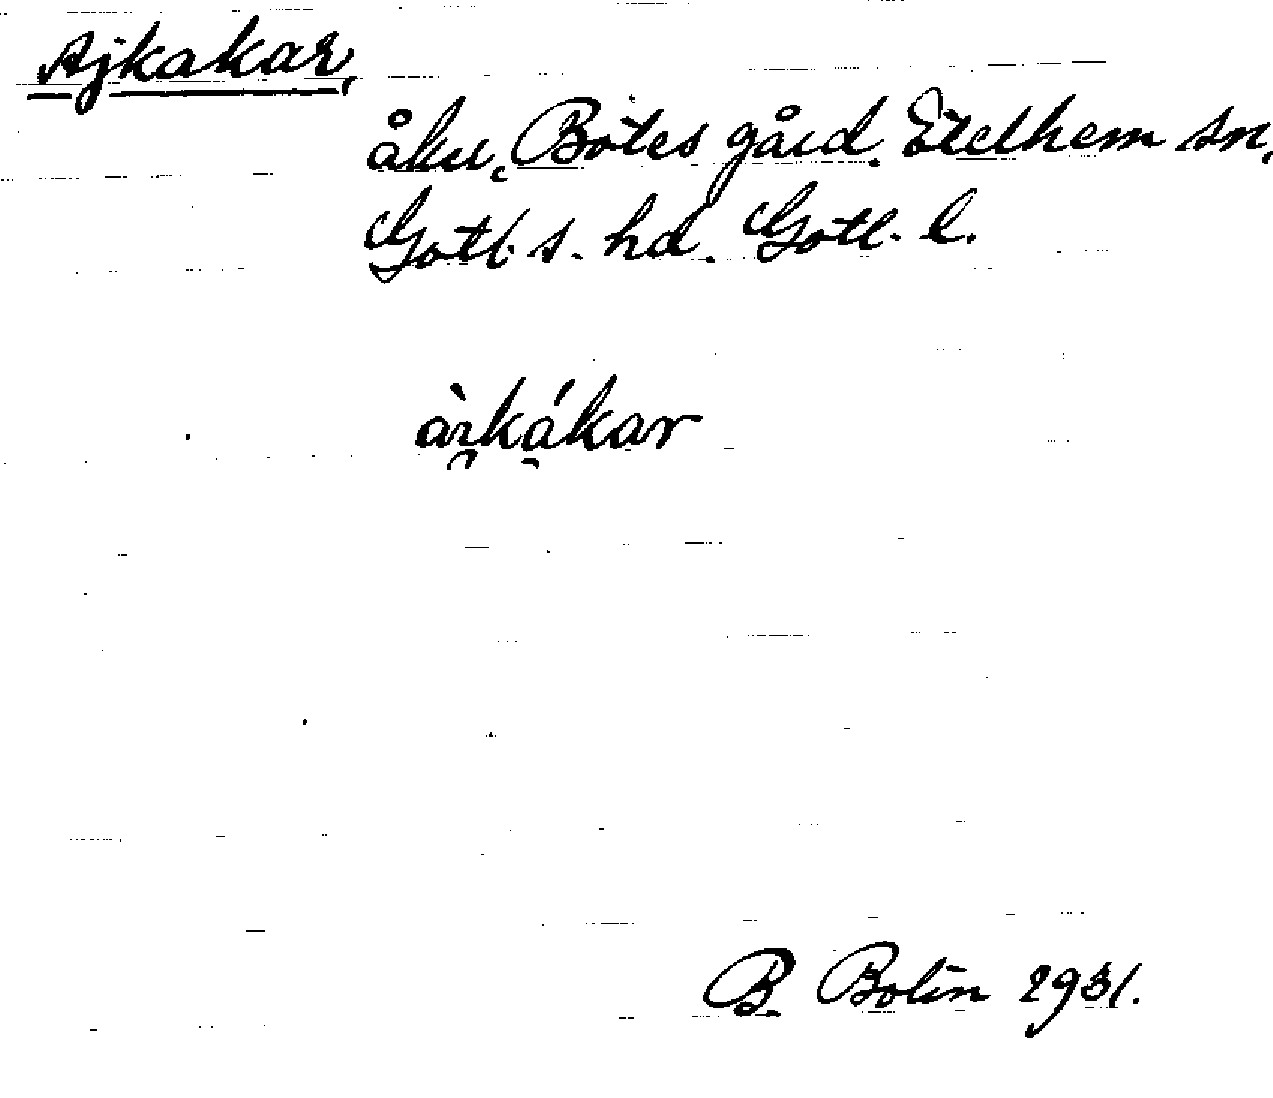 Ajkakar,
åkr, Botes gård. Etelhem sn,
Gotl. s. hd. Gotl. l.
àɪ̯kákar
B. Bolin 1931.